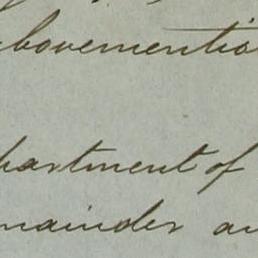 bovementio
partment of
mainder an